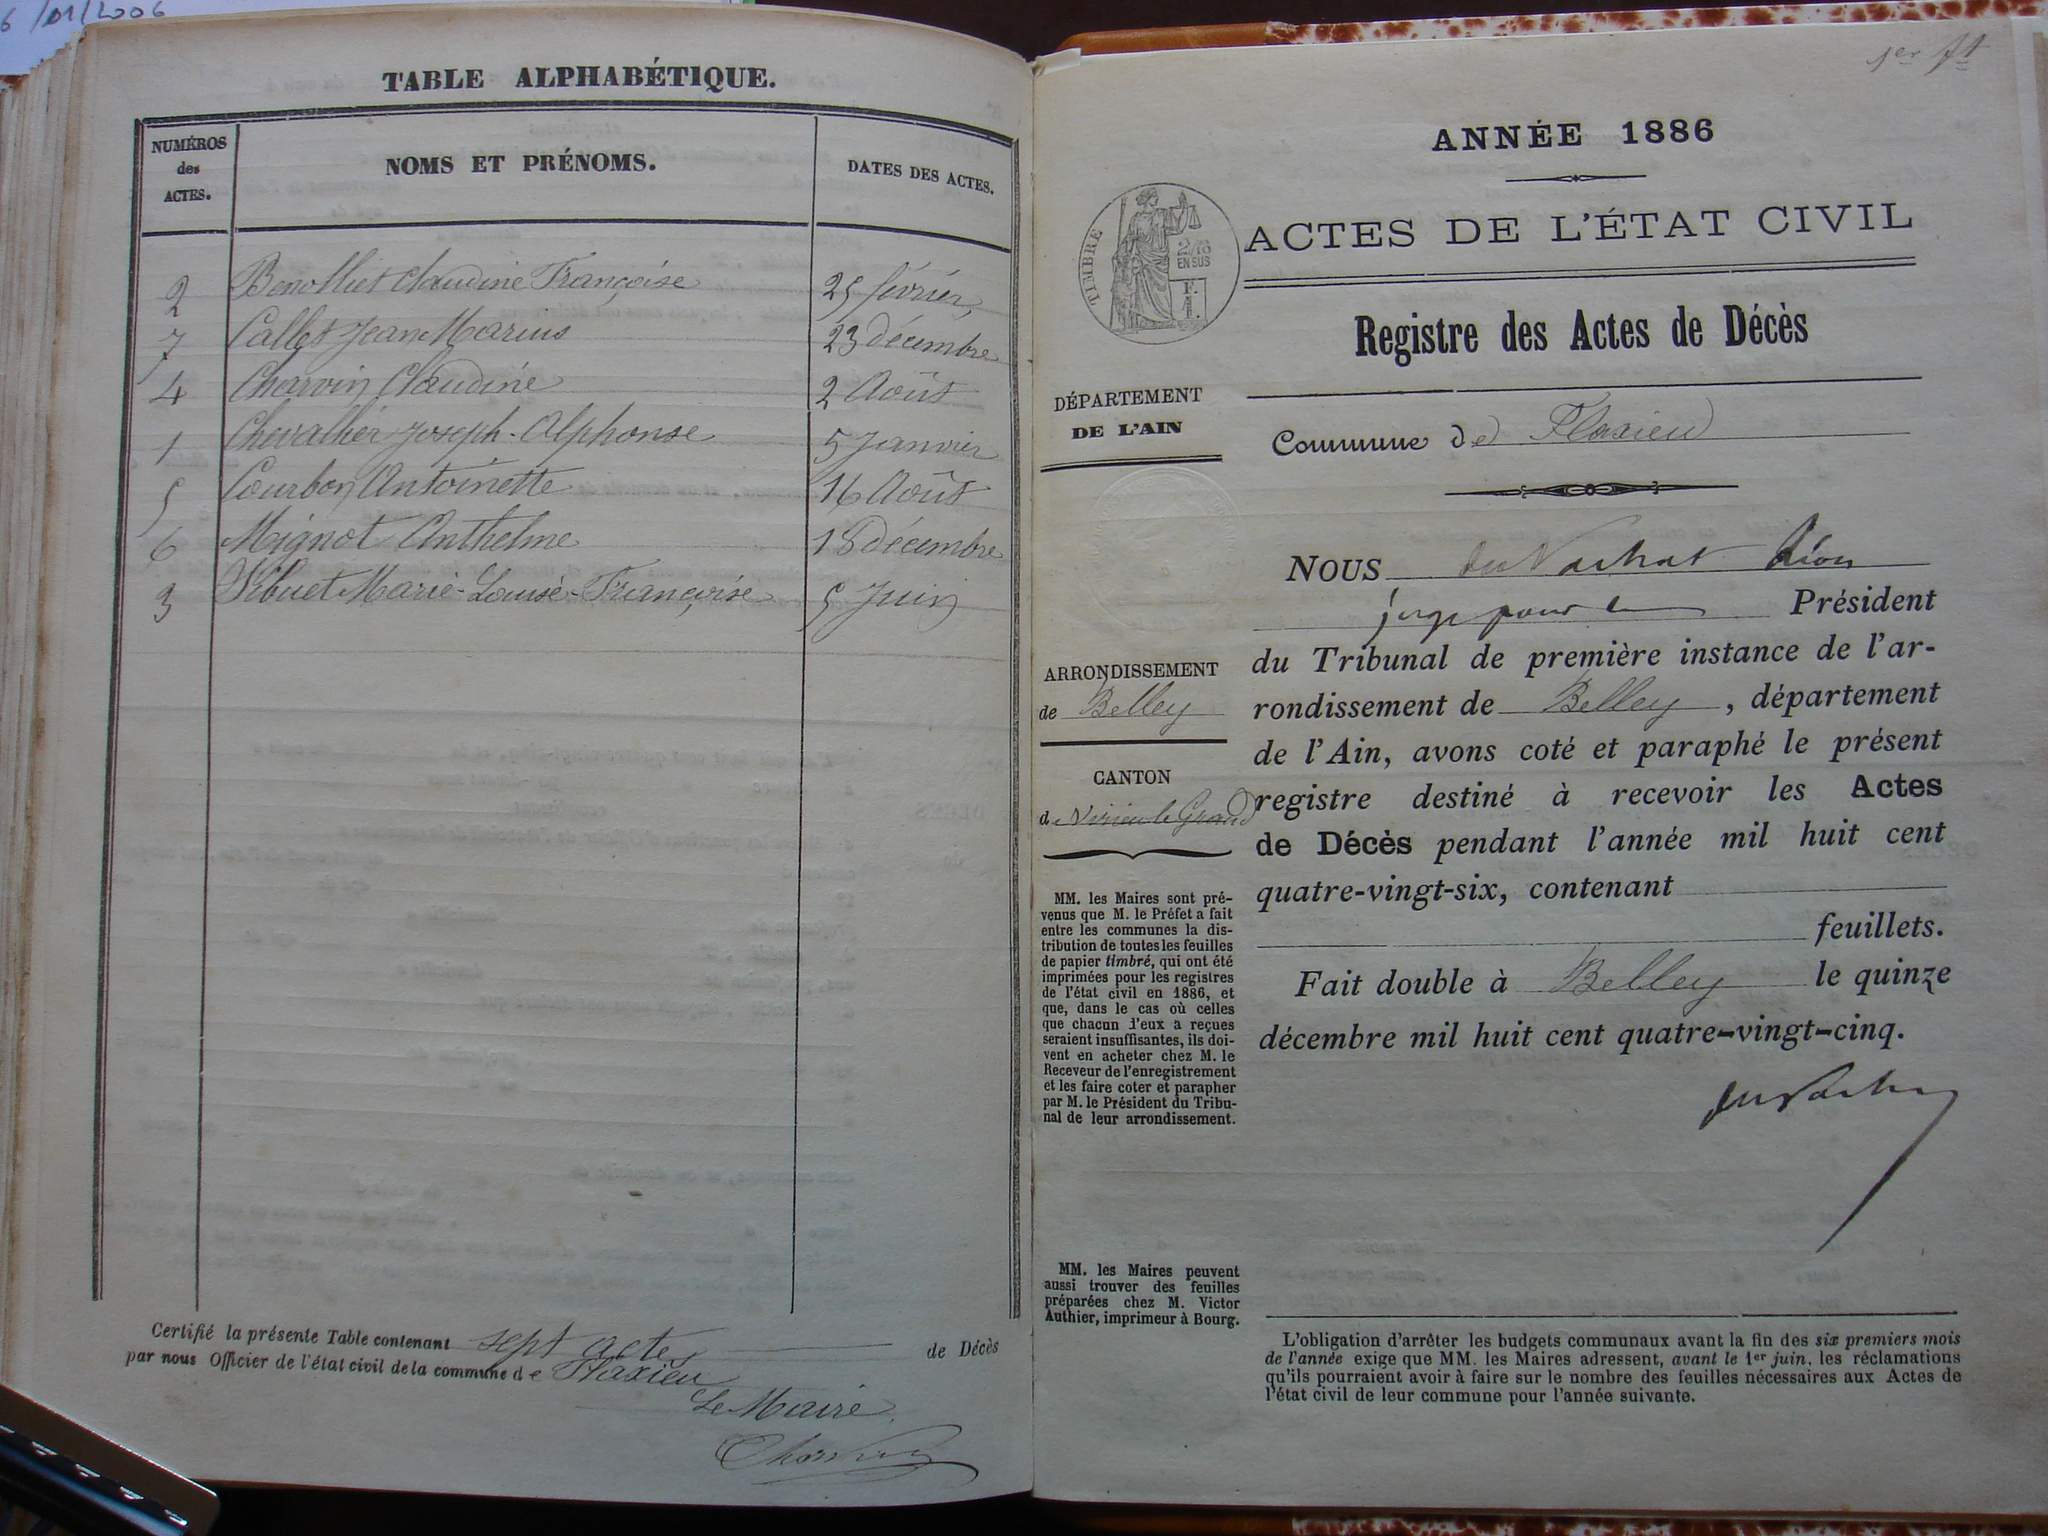 6/01/2006
TABLE ALPHABÉTIQUE.
NUMÉROS
des
ACTES.
NOMS ET PRÉNOMS.
DATES DES ACTES.
2 Benolliet Claudine Françoise 25 février
7 Callet Jean Marius 23 décembre
4 Charvin Claudine 2 Août
1 Chevallier Joseph-Alphonse 5 Janvier
5 Courbon Antoinette 16 Août
6 Mignot Anthelme 18 décembre
3 Vibuet Marie-Louise-Françoise 5 Juin
Certifié la présente Table contenant sept actes de Décès
par nous Officier de l'état civil de la commune de Flaxieu
Le Maire
Charvin
1er
ANNÉE 1886
TIMBRE
2/10
EN SUS
F.
1.
ACTES DE L'ÉTAT CIVIL
Registre des Actes de Décès
DÉPARTEMENT
DE L'AIN
Commune de Flaxieu
NOUS du Vachat Léon
juge pour le Président
du Tribunal de première instance de l'ar-
rondissement de Belley, département
de l'Ain, avons coté et paraphé le présent
registre destiné à recevoir les Actes
de Décès pendant l'année mil huit cent
quatre-vingt-six, contenant
feuillets.
Fait double à Belley le quinze
décembre mil huit cent quatre-vingt-cinq.
ARRONDISSEMENT
de Belley
CANTON
de Virieu le Grand
MM. les Maires sont pré-
venus que M. le Préfet a fait
entre les communes la dis-
tribution de toutes les feuilles
de papier timbré, qui ont été
imprimées pour les registres
de l'état civil en 1886, et
que, dans le cas où celles
que chacun d'eux a reçues
seraient insuffisantes, ils doi-
vent en acheter chez M. le
Receveur de l'enregistrement
et les faire coter et parapher
par M. le Président du Tribu-
nal de leur arrondissement.
MM. les Maires peuvent
aussi trouver des feuilles
préparées chez M. Victor
Authier, imprimeur à Bourg.
L'obligation d'arrêter les budgets communaux avant la fin des six premiers mois
de l'année exige que MM. les Maires adressent, avant le 1er juin, les réclamations
qu'ils pourraient avoir à faire sur le nombre des feuilles nécessaires aux Actes de
l'état civil de leur commune pour l'année suivante.